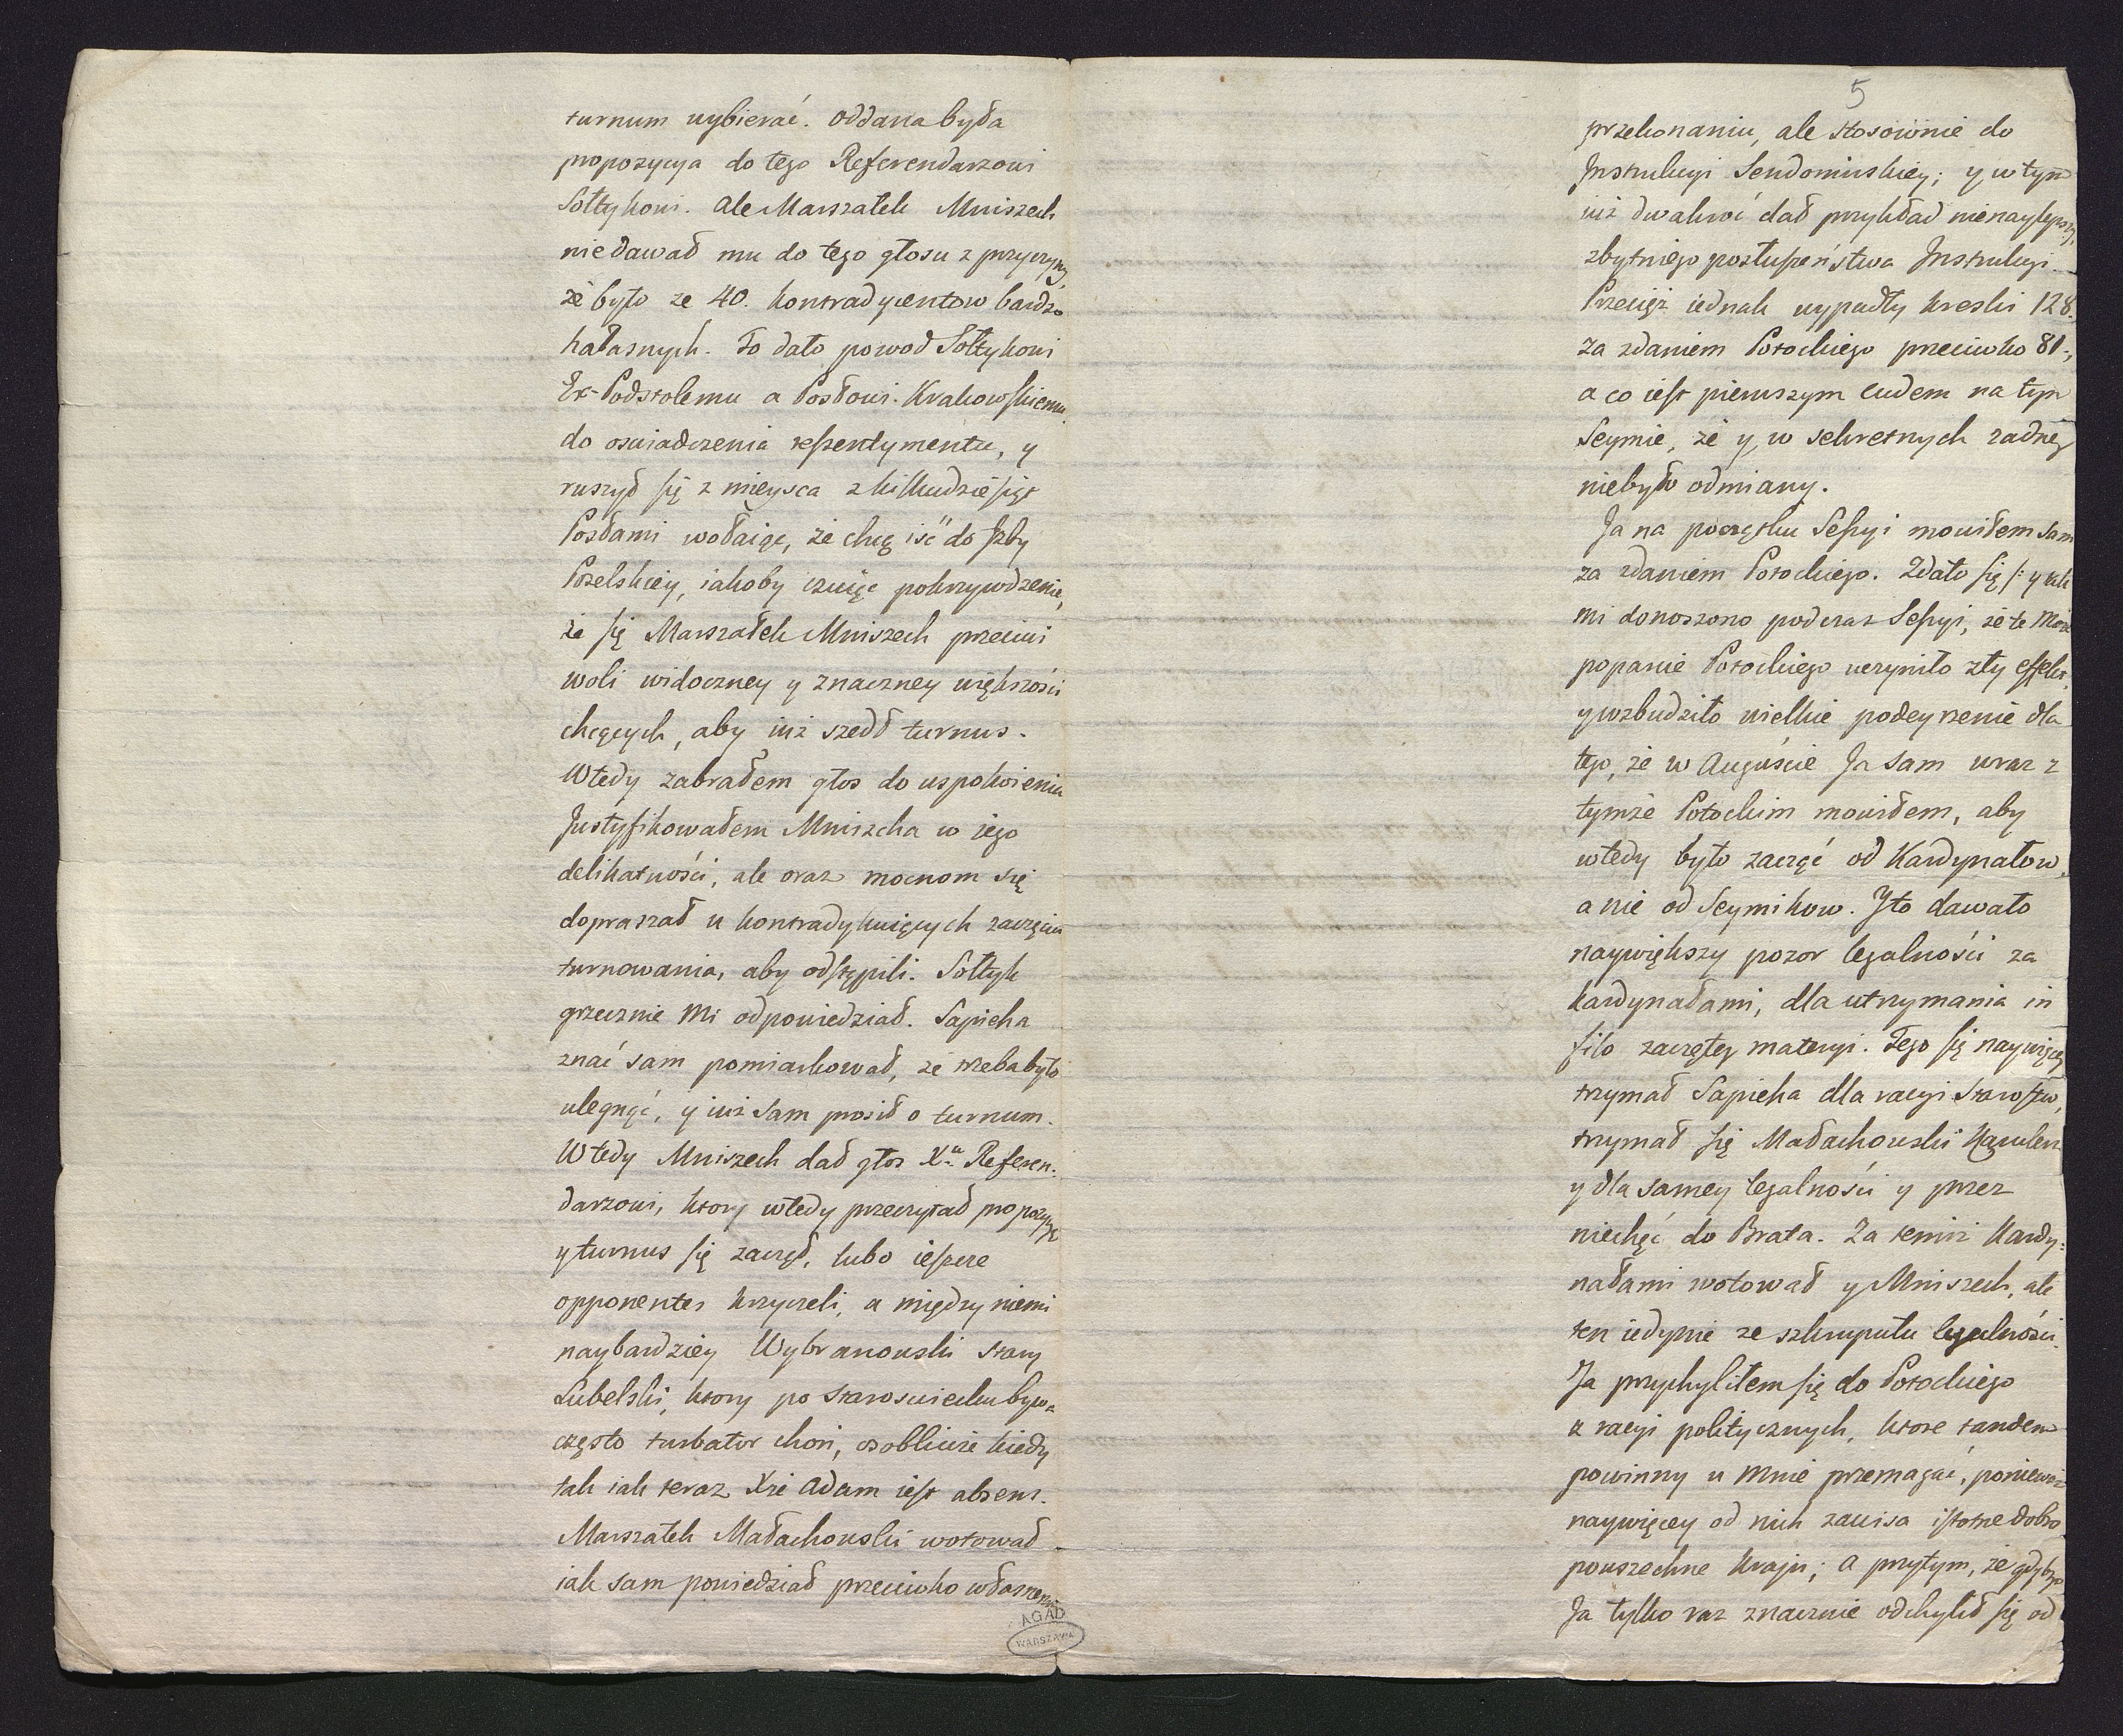 turnum wybierać. Oddana była
propozycya do tego Referendarzowi
Sołtykowi. Ale Marszałek Mniszech
niedawał mu do tego głosu z przyczyny,
że było ze 40. kontradycentow bardzo
hałasnych. To dało powod Sołtykowi
Ex-Podstolemu a Posłowi Krakowskiemu
do oswiadczenia ressentymentu, y
ruszył się z mieysca z kilkudziesiąt
Posłami wołaiąc, że chcą iść do Izby
Poselskiey, iakoby czuiąc pokrzywdzenie,
że się Marszałek Mniszech przeciwi
woli widoczney y znaczney większości
chcących, aby iuż szedł turnus.
Wtedy zabrałem głos do uspokoienia
Justyfikowałem Mniszcha w iego
delikatności, ale oraz mocnom się
dopraszał u kontradykuiących zaczęcia
turnowania, aby odstąpili. Sołtyk
grzecznie Mi odpowiedział. Sapieha
znać sam pomiarkował, że trzeba było
ulegnąć, y iuż sam prosił o turnum.
Wtedy Mniszech dał głos Xu Referen:
darzowi, ktory wtedy przeczytał propozycyę
y turnus się zaczął, lubo ieszcze
opponentes krzyczeli, a między niemi
naybardziey Wybranowski stary
Lubelski, ktory po staroswiecku bywa
często turbator chori, osobliwie kiedy
tak iak teraz Xże Adam iest absens.
Marszałek Małachowski wotował
iak sam powiedział przeciwko własnemu
AGAD
WARSZAWA
5
przekonaniu, ale stosownie do
Instrukcyi Sendomirskiey; y w tym
iuż dwakroć dał przykład nienaylepszy,
zbytniego posłuszeństwa Instrukcyi.
Przecięż iednak wypadły kreski 128.
za zdaniem Potockiego przeciwko 81.,
a co iest pierwszym cudem na tym
Seymie, że y w sekretnych żadney
niebyło odmiany.
Ja na początku Sessyi mowiłem sam
za zdaniem Potockiego. Zdało się /: y tak
mi donoszono podczas Sessyi, że te Moie
popanie Potockiego uczyniło zły effekt,
y wzbudziło wielkie podeyrzenie dla
tego, że w Auguście Ja sam wraz z
tymże Potockim mowiłem, aby
wtedy było zacząć od Kardynałow,
a nie od Seymikow. Y to dawało
naywiększy pozor legalności za
kardynałami, dla utrzymania in
filo zaczętey materyi. Tego się naywięcey
trzymał Sapieha dla racyi Starostw,
trzymał się Małachowski Kanclerz
y dla samey legalności y przez
niechęć do Brata. Za temiż Kardy:
nałami wotował y Mniszech, ale
ten iedynie ze szkrupułu legalności.
Ja przychyliłem się do Potockiego
z racyi politycznych, ktore tandem
powinny u Mnie przemagać, ponieważ
naywięcey od nich zawisa istotne dobro
powszechne kraju; a przytym, że gdybym
Ja tylko raz znacznie odchylił się od